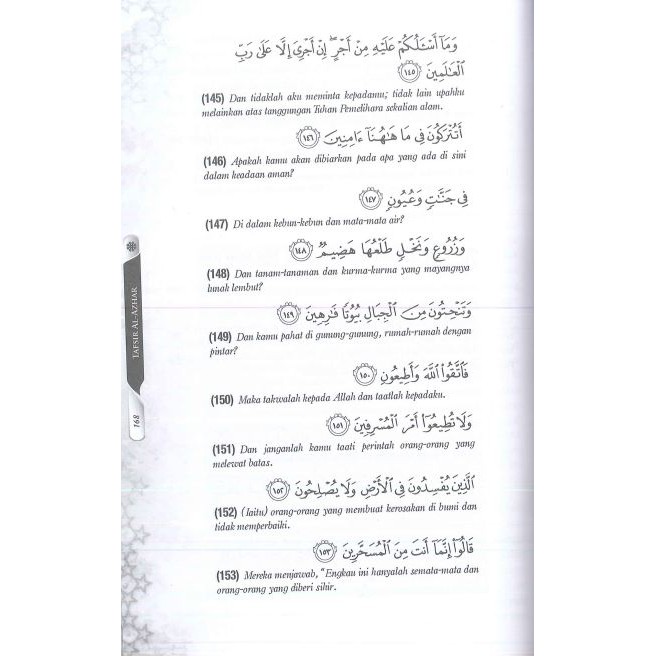 وَمَآ أَسْـَٔلُكُمْ عَلَيْهِ مِنْ أَجْرٍ ۖ إِنْ أَجْرِىَ إِلَّا عَلَىٰ رَبِّ
ٱلْعَـٰلَمِينَ ١٤٥
(145) Dan tidaklah aku meminta kepadamu; tidak lain upahku
melainkan atas tanggungan Tuhan Pemelihara sekalian alam.
أَتُتْرَكُونَ فِى مَا هَـٰهُنَآ ءَامِنِينَ ١٤٦
(146) Apakah kamu akan dibiarkan pada apa yang ada di sini
dalam keadaan aman?
فِى جَنَّـٰتٍ وَعُيُونٍ ١٤٧
(147) Di dalam kebun-kebun dan mata-mata air?
وَزُرُوعٍ وَنَخْلٍ طَلْعُهَا هَضِيمٌ ١٤٨
(148) Dan tanam-tanaman dan kurma-kurma yang mayangnya
lunak lembut?
وَتَنْحِتُونَ مِنَ ٱلْجِبَالِ بُيُوتًا فَـٰرِهِينَ ١٤٩
(149) Dan kamu pahat di gunung-gunung, rumah-rumah dengan
pintar?
فَٱتَّقُوا۟ ٱللَّهَ وَأَطِيعُونِ ١٥٠
(150) Maka takwalah kepada Allah dan taatlah kepadaku.
وَلَا تُطِيعُوٓا۟ أَمْرَ ٱلْمُسْرِفِينَ ١٥١
(151) Dan janganlah kamu taati perintah orang-orang yang
melewat batas.
ٱلَّذِينَ يُفْسِدُونَ فِى ٱلْأَرْضِ وَلَا يُصْلِحُونَ ١٥٢
(152) (Iaitu) orang-orang yang membuat kerosakan di bumi dan
tidak memperbaiki.
قَالُوٓا۟ إِنَّمَآ أَنتَ مِنَ ٱلْمُسَحَّرِينَ ١٥٣
(153) Mereka menjawab, "Engkau ini hanyalah semata-mata dan
orang-orang yang diberi sihir.
TAFSIR AL-AZHAR
168